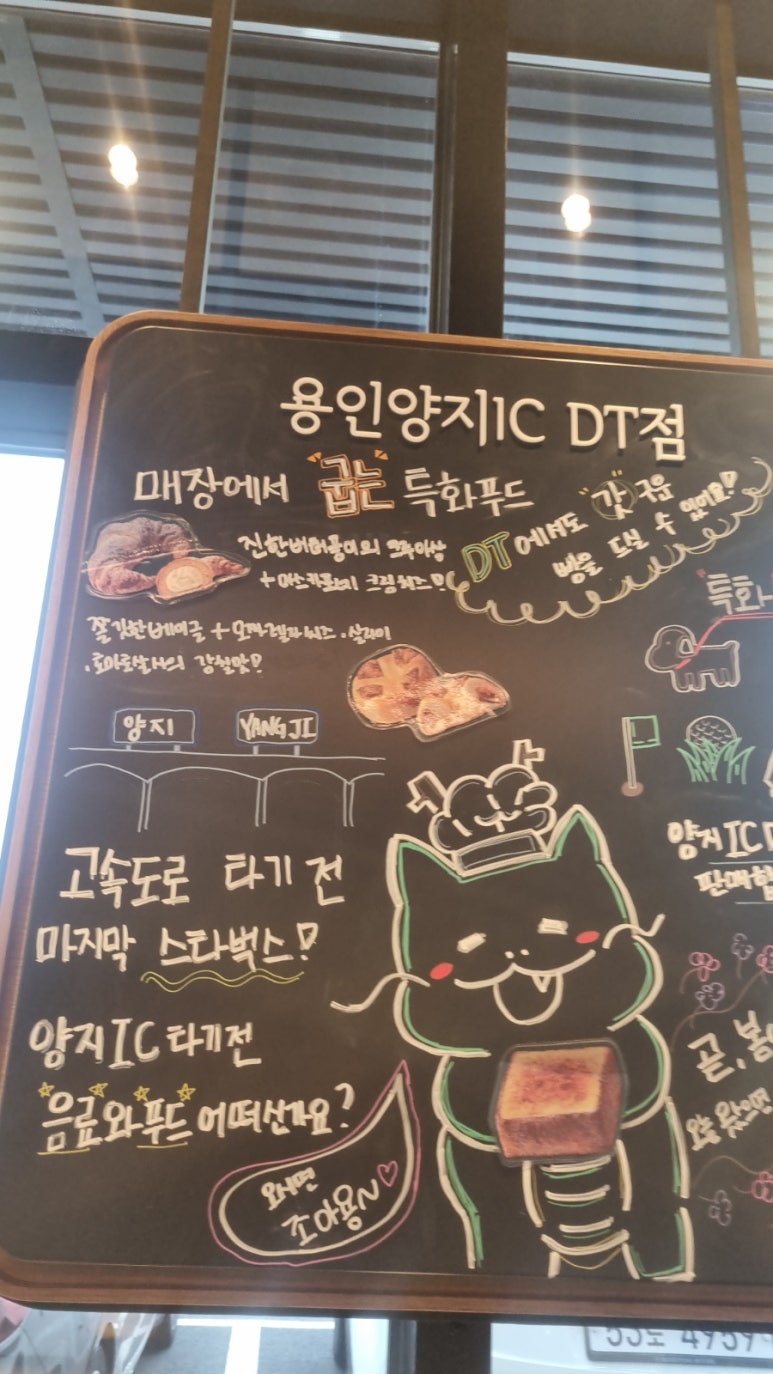 용인양지IC DT점
매장에서 "굽는" 특화푸드
진한버터풍미의 크루아상
+ 마스카포네 크림치즈!
DT에서도 "갓" 구운
빵을 드실 수 있어요!
쫄깃한베이글 + 모짜렐라치즈.살라미
.토마토살사의 강칠맛!
"특화
양지
YANG JI
고속도로 타기 전
마지막 스타벅스!
양지IC
판매합
양지IC 타기전
음료와푸드 어떠신가요?
곧, 봄
오늘 왔으면
오시면
조아용~♡
4959